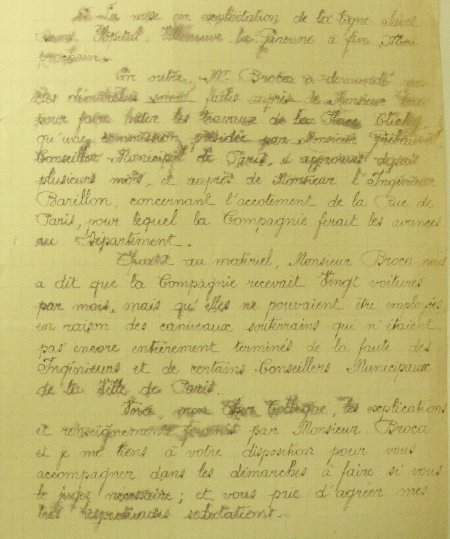 La mise en exploitation de la ligne Saint
Villeneuve la Garenne à fin Mai
prochain.
En outre, Mr Broca a demandé que
des démarches soient faites auprès de Monsieur
pour faire hâter les travaux de la Place Clichy
qu'une commission présidée par Monsieur
Conseiller Municipal de Paris, a approuvé depuis
plusieurs mois, et auprès de Monsieur l'Ingénieur
Barillon, concernant l'accotement de la Rue de
Paris, pour lequel la Compagnie ferait les avances
au Département.
Quant au matériel, Monsieur Broca nous
a dit que la Compagnie recevait Vingt voitures
par mois, mais qu'elles ne pouvaient être employées
en raison des caniveaux souterrains qui n'étaient
pas encore entièrement terminés de la faute des
Ingénieurs et de certains Conseillers Municipaux
de la Ville de Paris.
Voici, mon Cher Collègue, les explications
et renseignements fournis par Monsieur Broca
et je me tiens à votre disposition pour vous
accompagner dans les démarches à faire si vous
le jugez nécessaire ; et vous prie d'agréer mes
très salutations.-